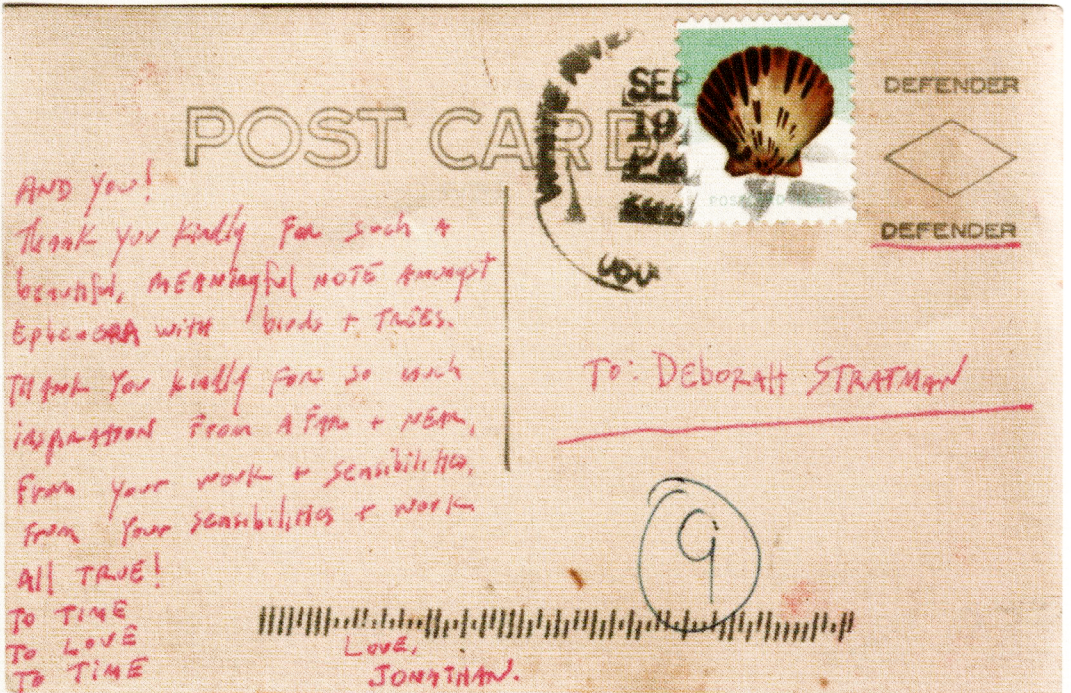 POST CARD
SEP
19
DEFENDER
DEFENDER
AND YOU!
Thank you kindly For such a
beautiful, MEANingful NOTE Amongst
EphemERA with birds + TREES.
THANK You kindly For so much
inspiRATION From AFAR + NEAR,
From your work + sensibilities,
From Your sensibilities + work
All TRUE!
TO TIME
To LOVE
To TIME
LOVE,
JONATHAN.
To: DEBORAH STRATMAN
9